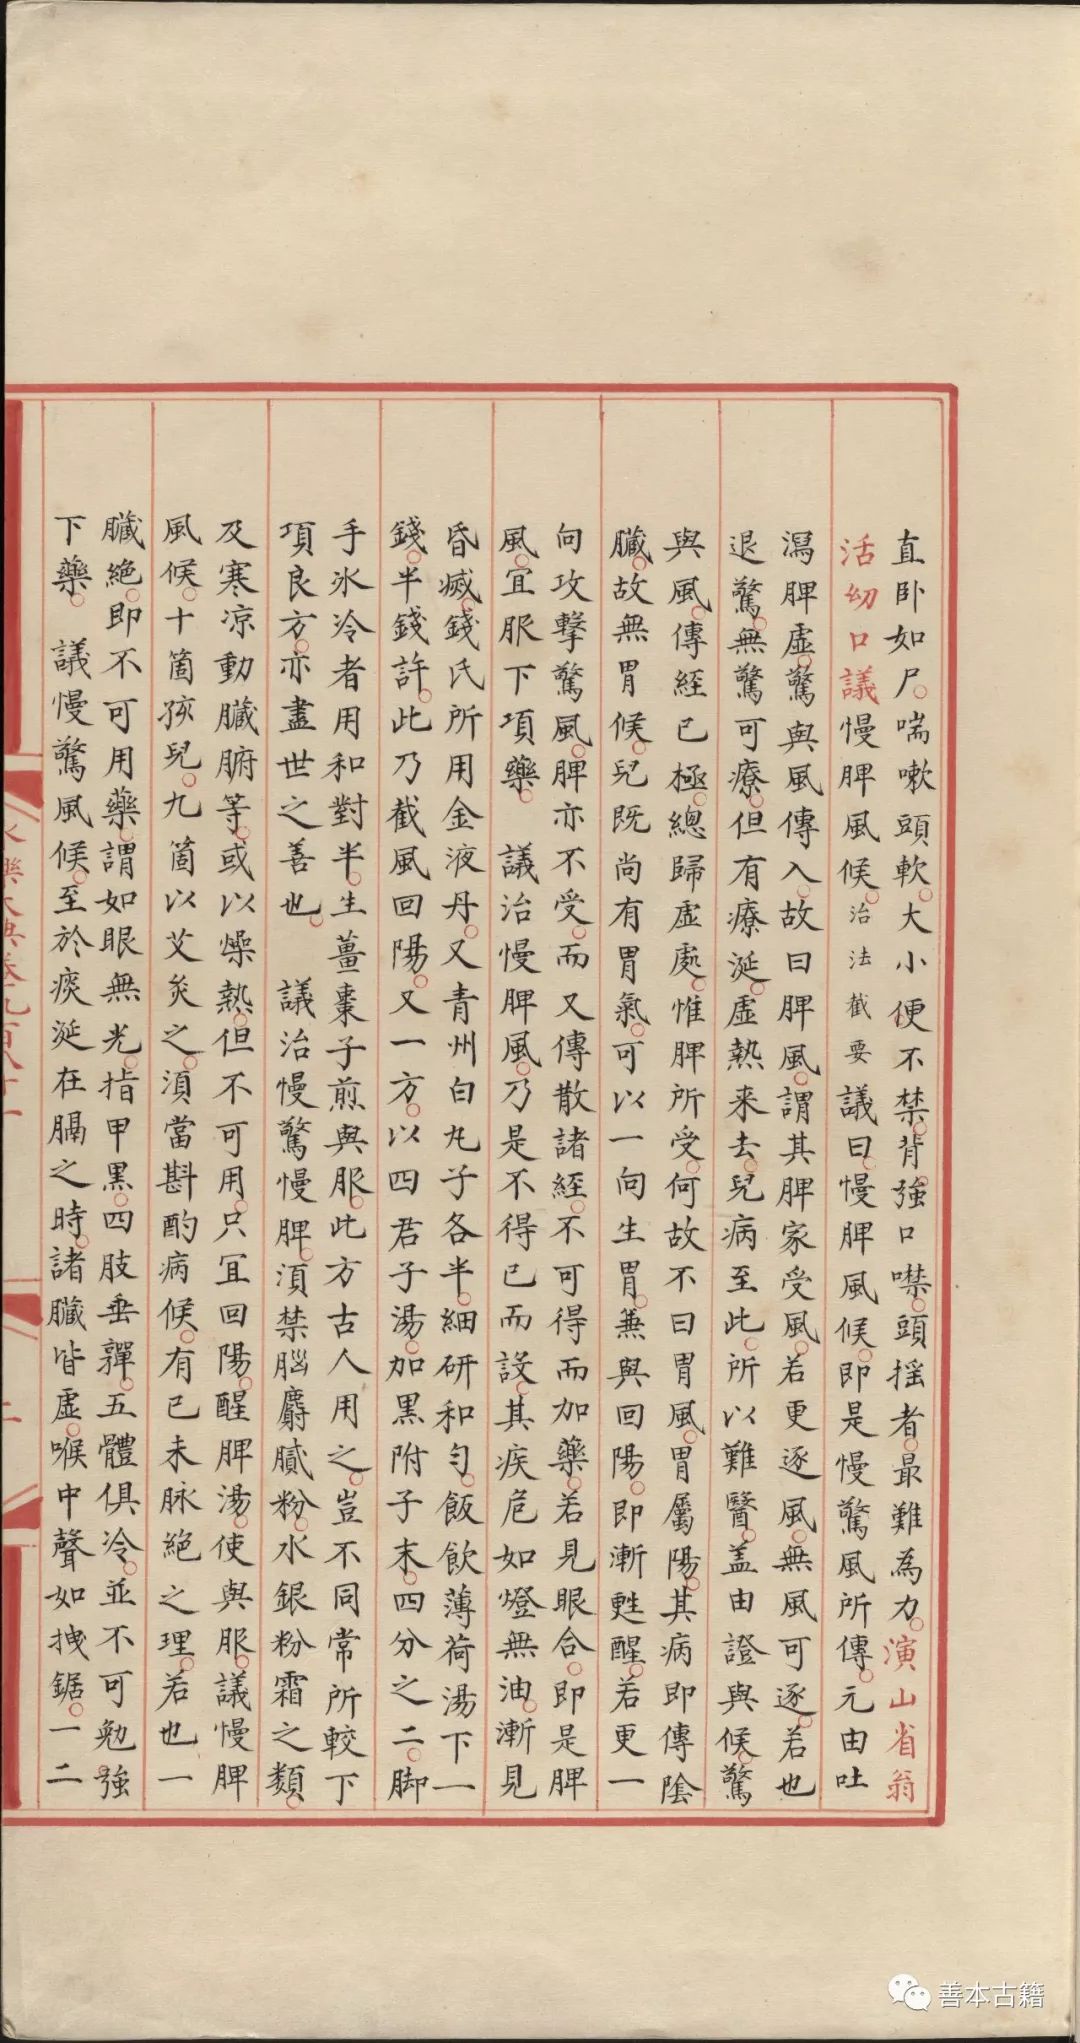 直卧如尸。喘嗽頭軟。大小便不禁。背強口噤。頭揺者。最難為力。演山省翁
活幼口議慢脾風候。治法截要議曰。慢脾風候。即是慢驚風所傳。元由吐
瀉脾虛。驚與風傳入。故曰脾風。謂其脾家受風。若更逐風。無風可逐。若也
退驚。無驚可療。但有療涎。虛熱来去。兒病至此。所以難醫。盖由證與候。驚
與風。傳經已極。總歸虛處。惟脾所受。何故不曰胃風。胃屬陽。其病即傳陰
臟。故無胃候。兒既尚有胃氣。可以一向生胃。兼與回陽。即漸甦醒。若更一
向攻擊驚風。脾亦不受。而又傳散諸經。不可得而加藥。若見眼合。即是脾
風。宜服下項藥。 議治慢脾風。乃是不得已而設。其疾危如燈無油。漸見
昏滅。錢氏所用金液丹。又青州白丸子各半。細研和匀。飯飲薄荷湯下一
錢。半錢許。此乃截風回陽。又一方。以四君子湯。加黑附子末。四分之二。脚
手氷冷者用和對半。生薑棗子煎與服。此方古人用之。豈不同常所較下
項良方。亦盡世之善也。 議治慢驚慢脾。須禁腦麝膩粉。水銀粉霜之類。
及寒凉動臟腑等。或以燥熱。但不可用。只宜回陽。醒脾湯。使與服。議慢脾
風候。十箇孩兒。九箇以艾灸之。須當斟酌病候。有已未脉絕之理。若也一
臟絕。即不可用藥。謂如眼無光。指甲黑。四肢垂嚲。五體俱冷。並不可勉強
下藥。 議慢驚風候。至於痰涎在膈之時。諸臟皆虛。喉中聲如拽鋸。一二
永樂大典卷九百八十一
二
善本古籍